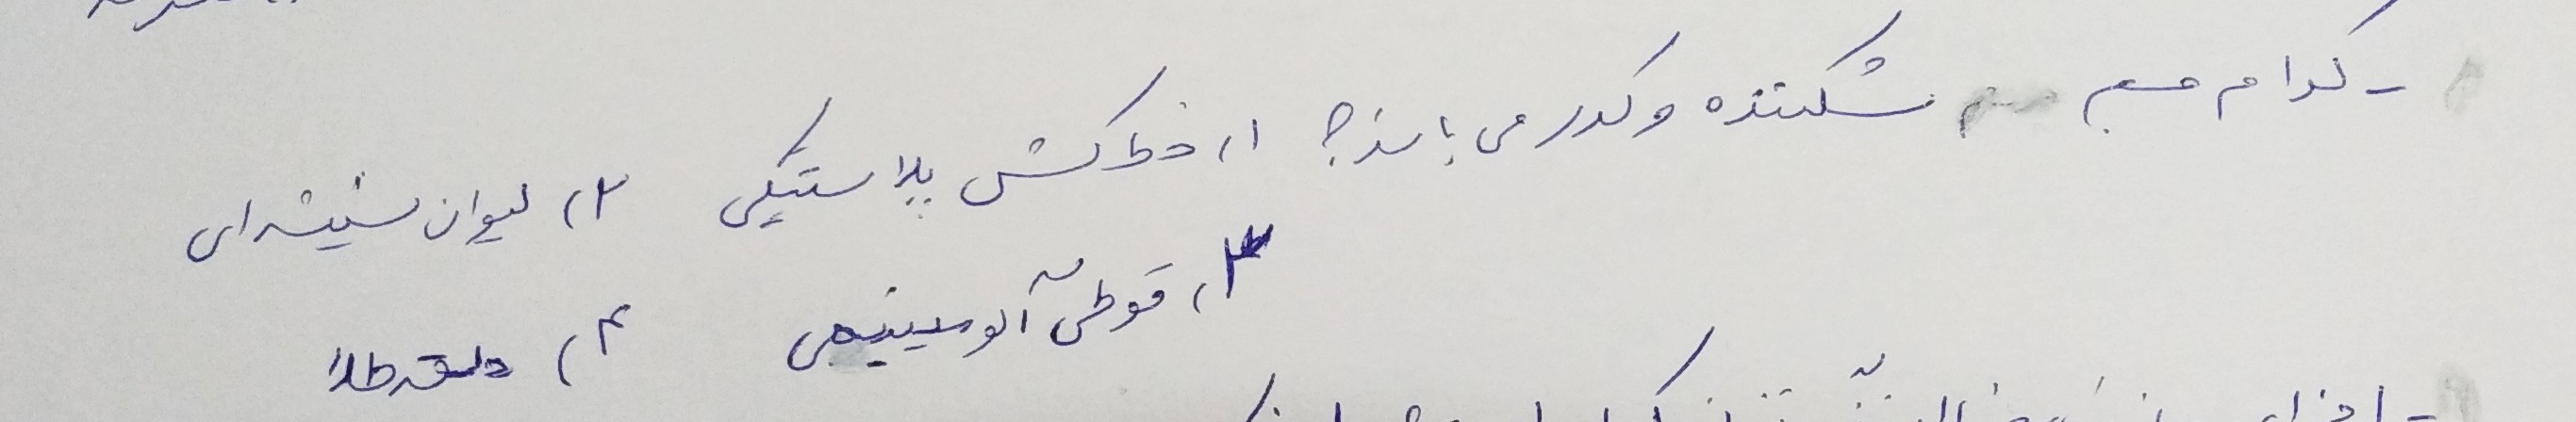 - کدام جسم شکننده و کدر می باشد؟ ۱) خط کش پلاستیکی ۲) لیوان شیشه ای
۳) قوطی آلومینیمی ۴) حلقه طلا